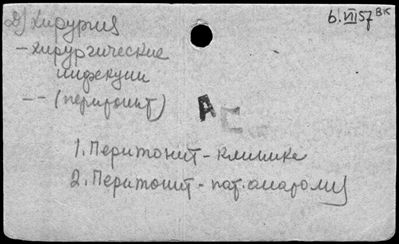 2) Хирургия
6.VII 57 вк
- хирургические
инфекции
-- (перитонит)
АС
1. Перитонит - клиника
2. Перитонит - пат. анатомия